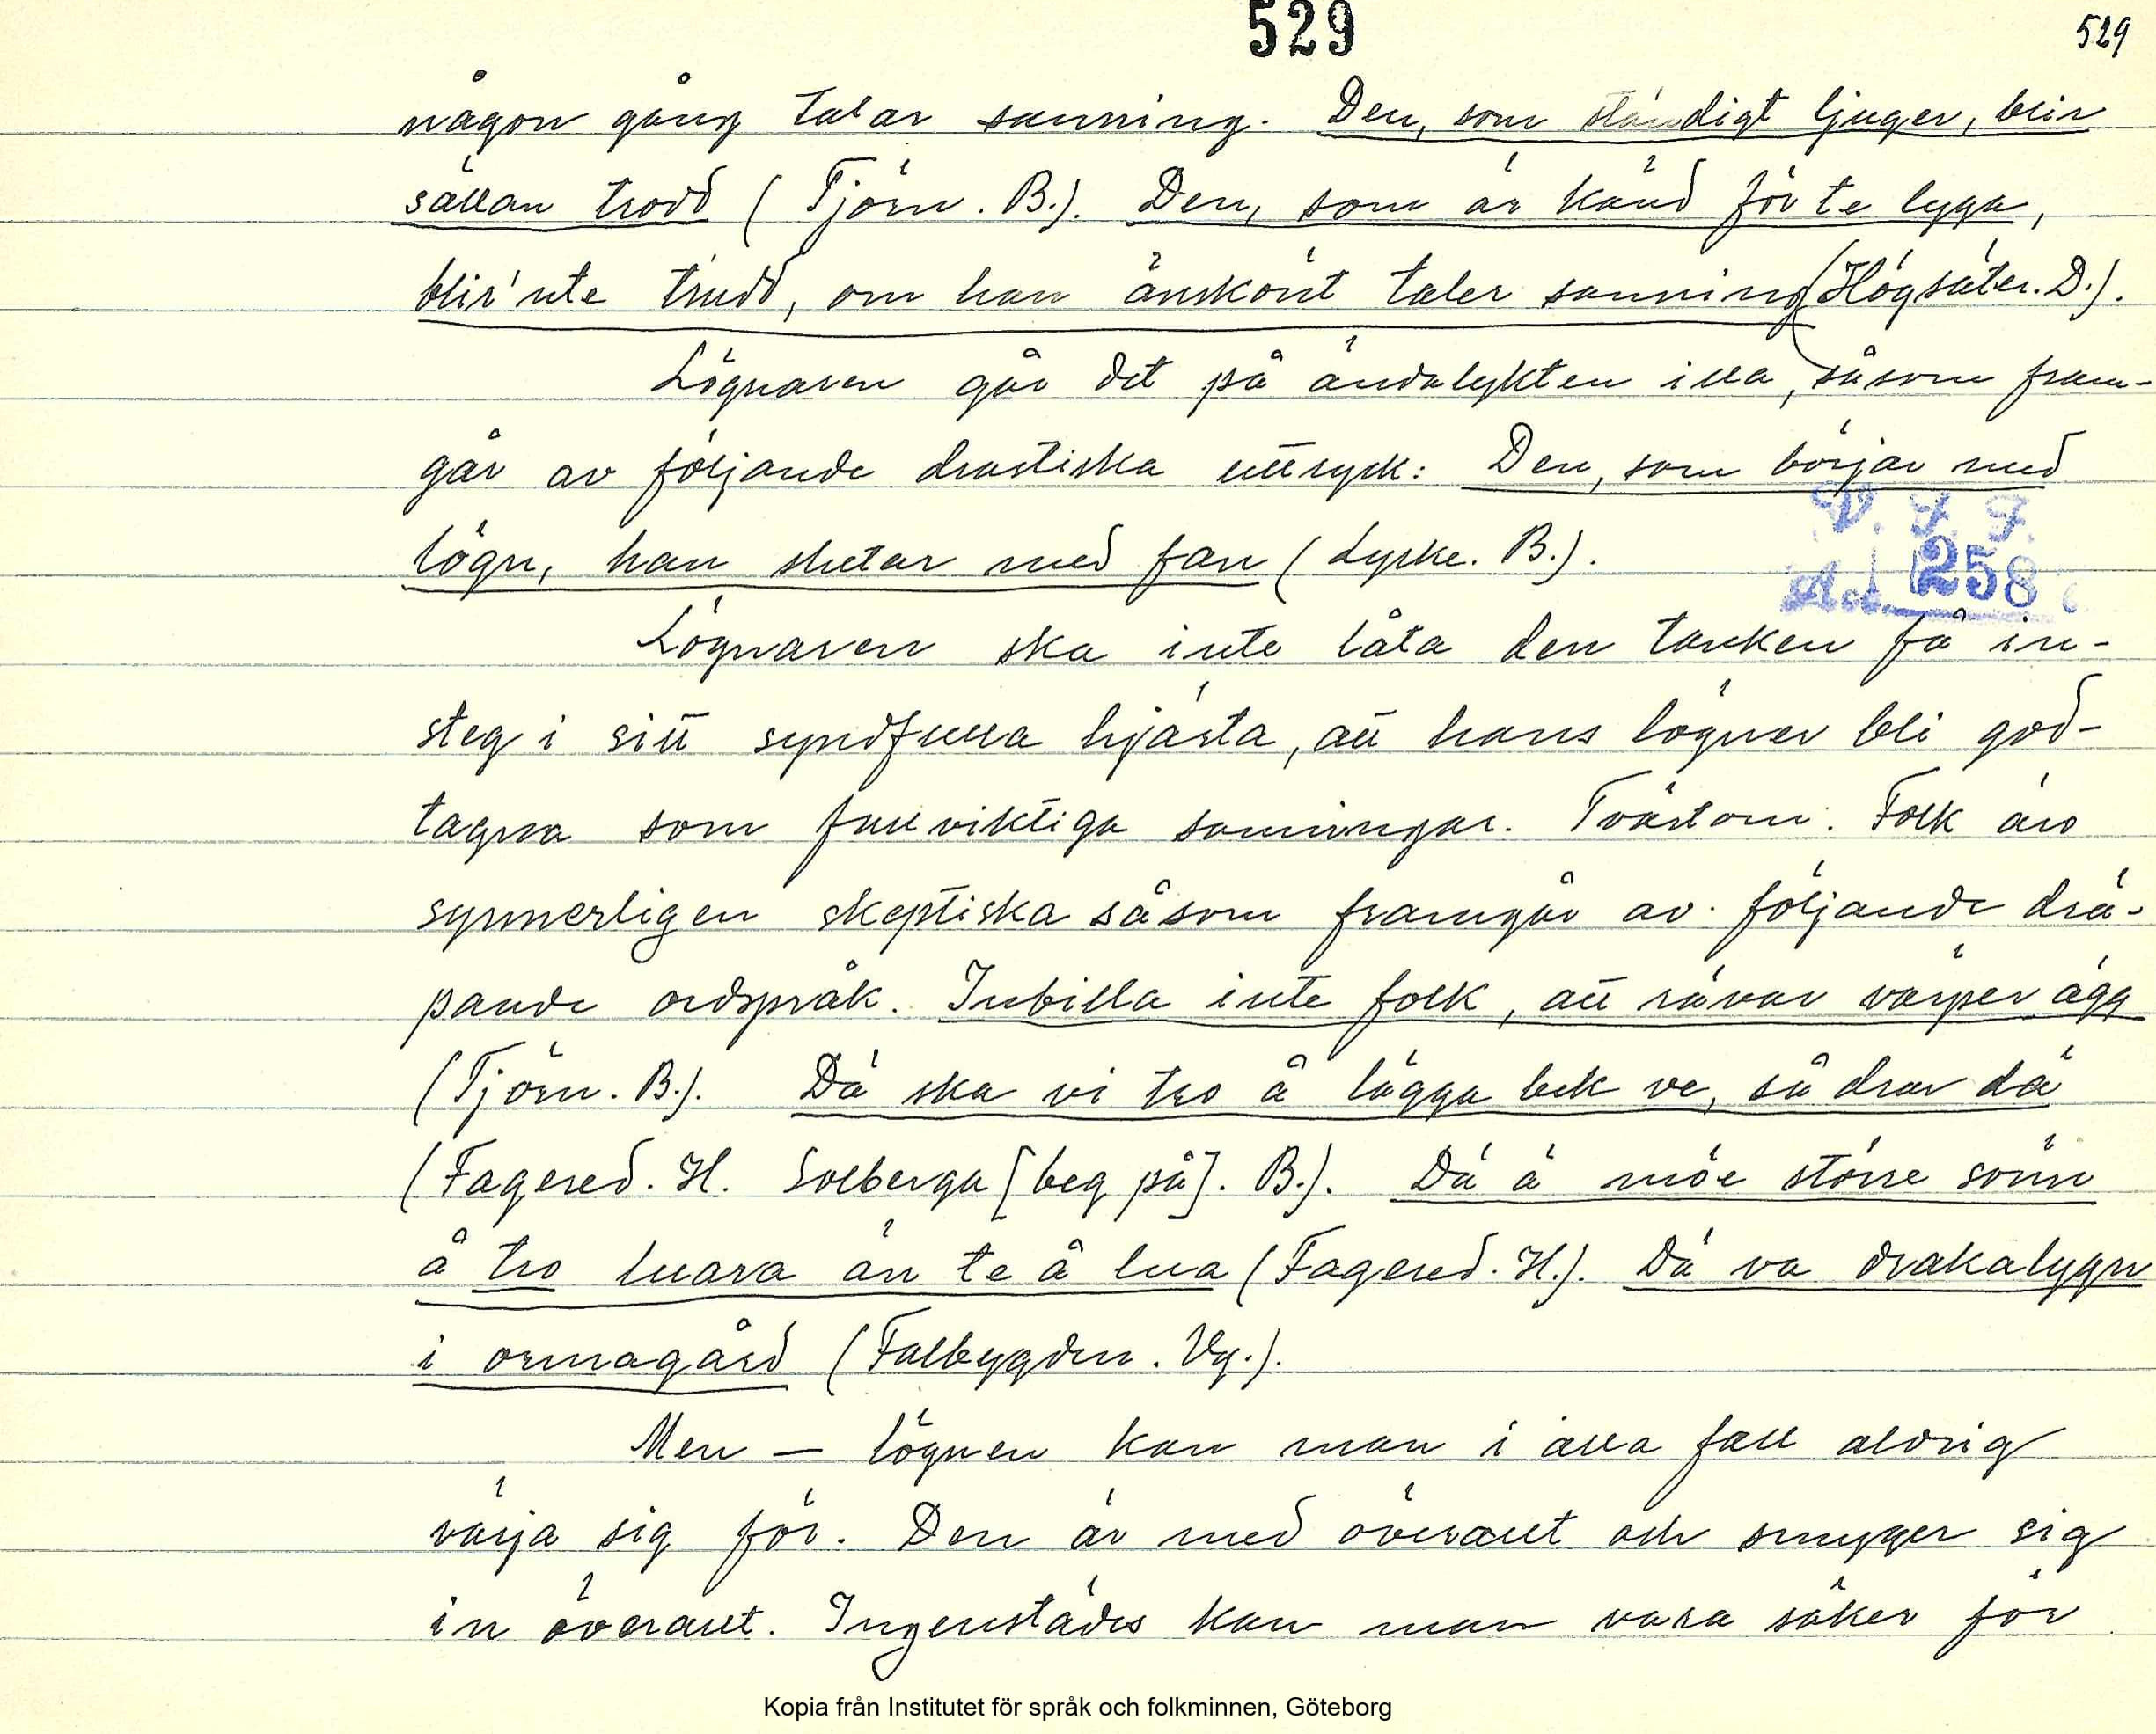 529
529
någon gång talar sanning. Den, som ständigt ljuger, blir
sällan trodd (Tjörn. B.). Den, som är känd för te lyga,
blir'nte trudd, om han änskönt taler sanning (Högsäter. D.).
Lögnaren går det på ändalykten illa, såsom fram-
går av följande drastiska uttryck: Den, som börjar med
lögn, han slutar med fan (Lyrke. B.).
V. F. F.
Acc. 258
Lögnaren ska inte låta den tanken få in-
steg i sitt syndfulla hjärta, att hans lögner bli god-
tagna som fullviktiga sanningar. Tvärtom. Folk äro
synnerligen skeptiska såsom framgår av följande drä-
pande ordspråk. Inbilla inte folk, att rävar värper ägg
(Tjörn. B.). Dä ska vi tro å lägga bek ve, så drar dä
(Fagered. H. Solberga [beg på]. B.). Dä ä möe större sönn
å tro luara än te å lua (Fagered. H.). Dä va drakalygn
i ormagård (Falbygden. Vg.).
Men — lögnen kan man i alla fall aldrig
värja sig för. Den är med överallt och smyger sig
in överallt. Ingenstädes kan man vara säker för
Kopia från Institutet för språk och folkminnen, Göteborg